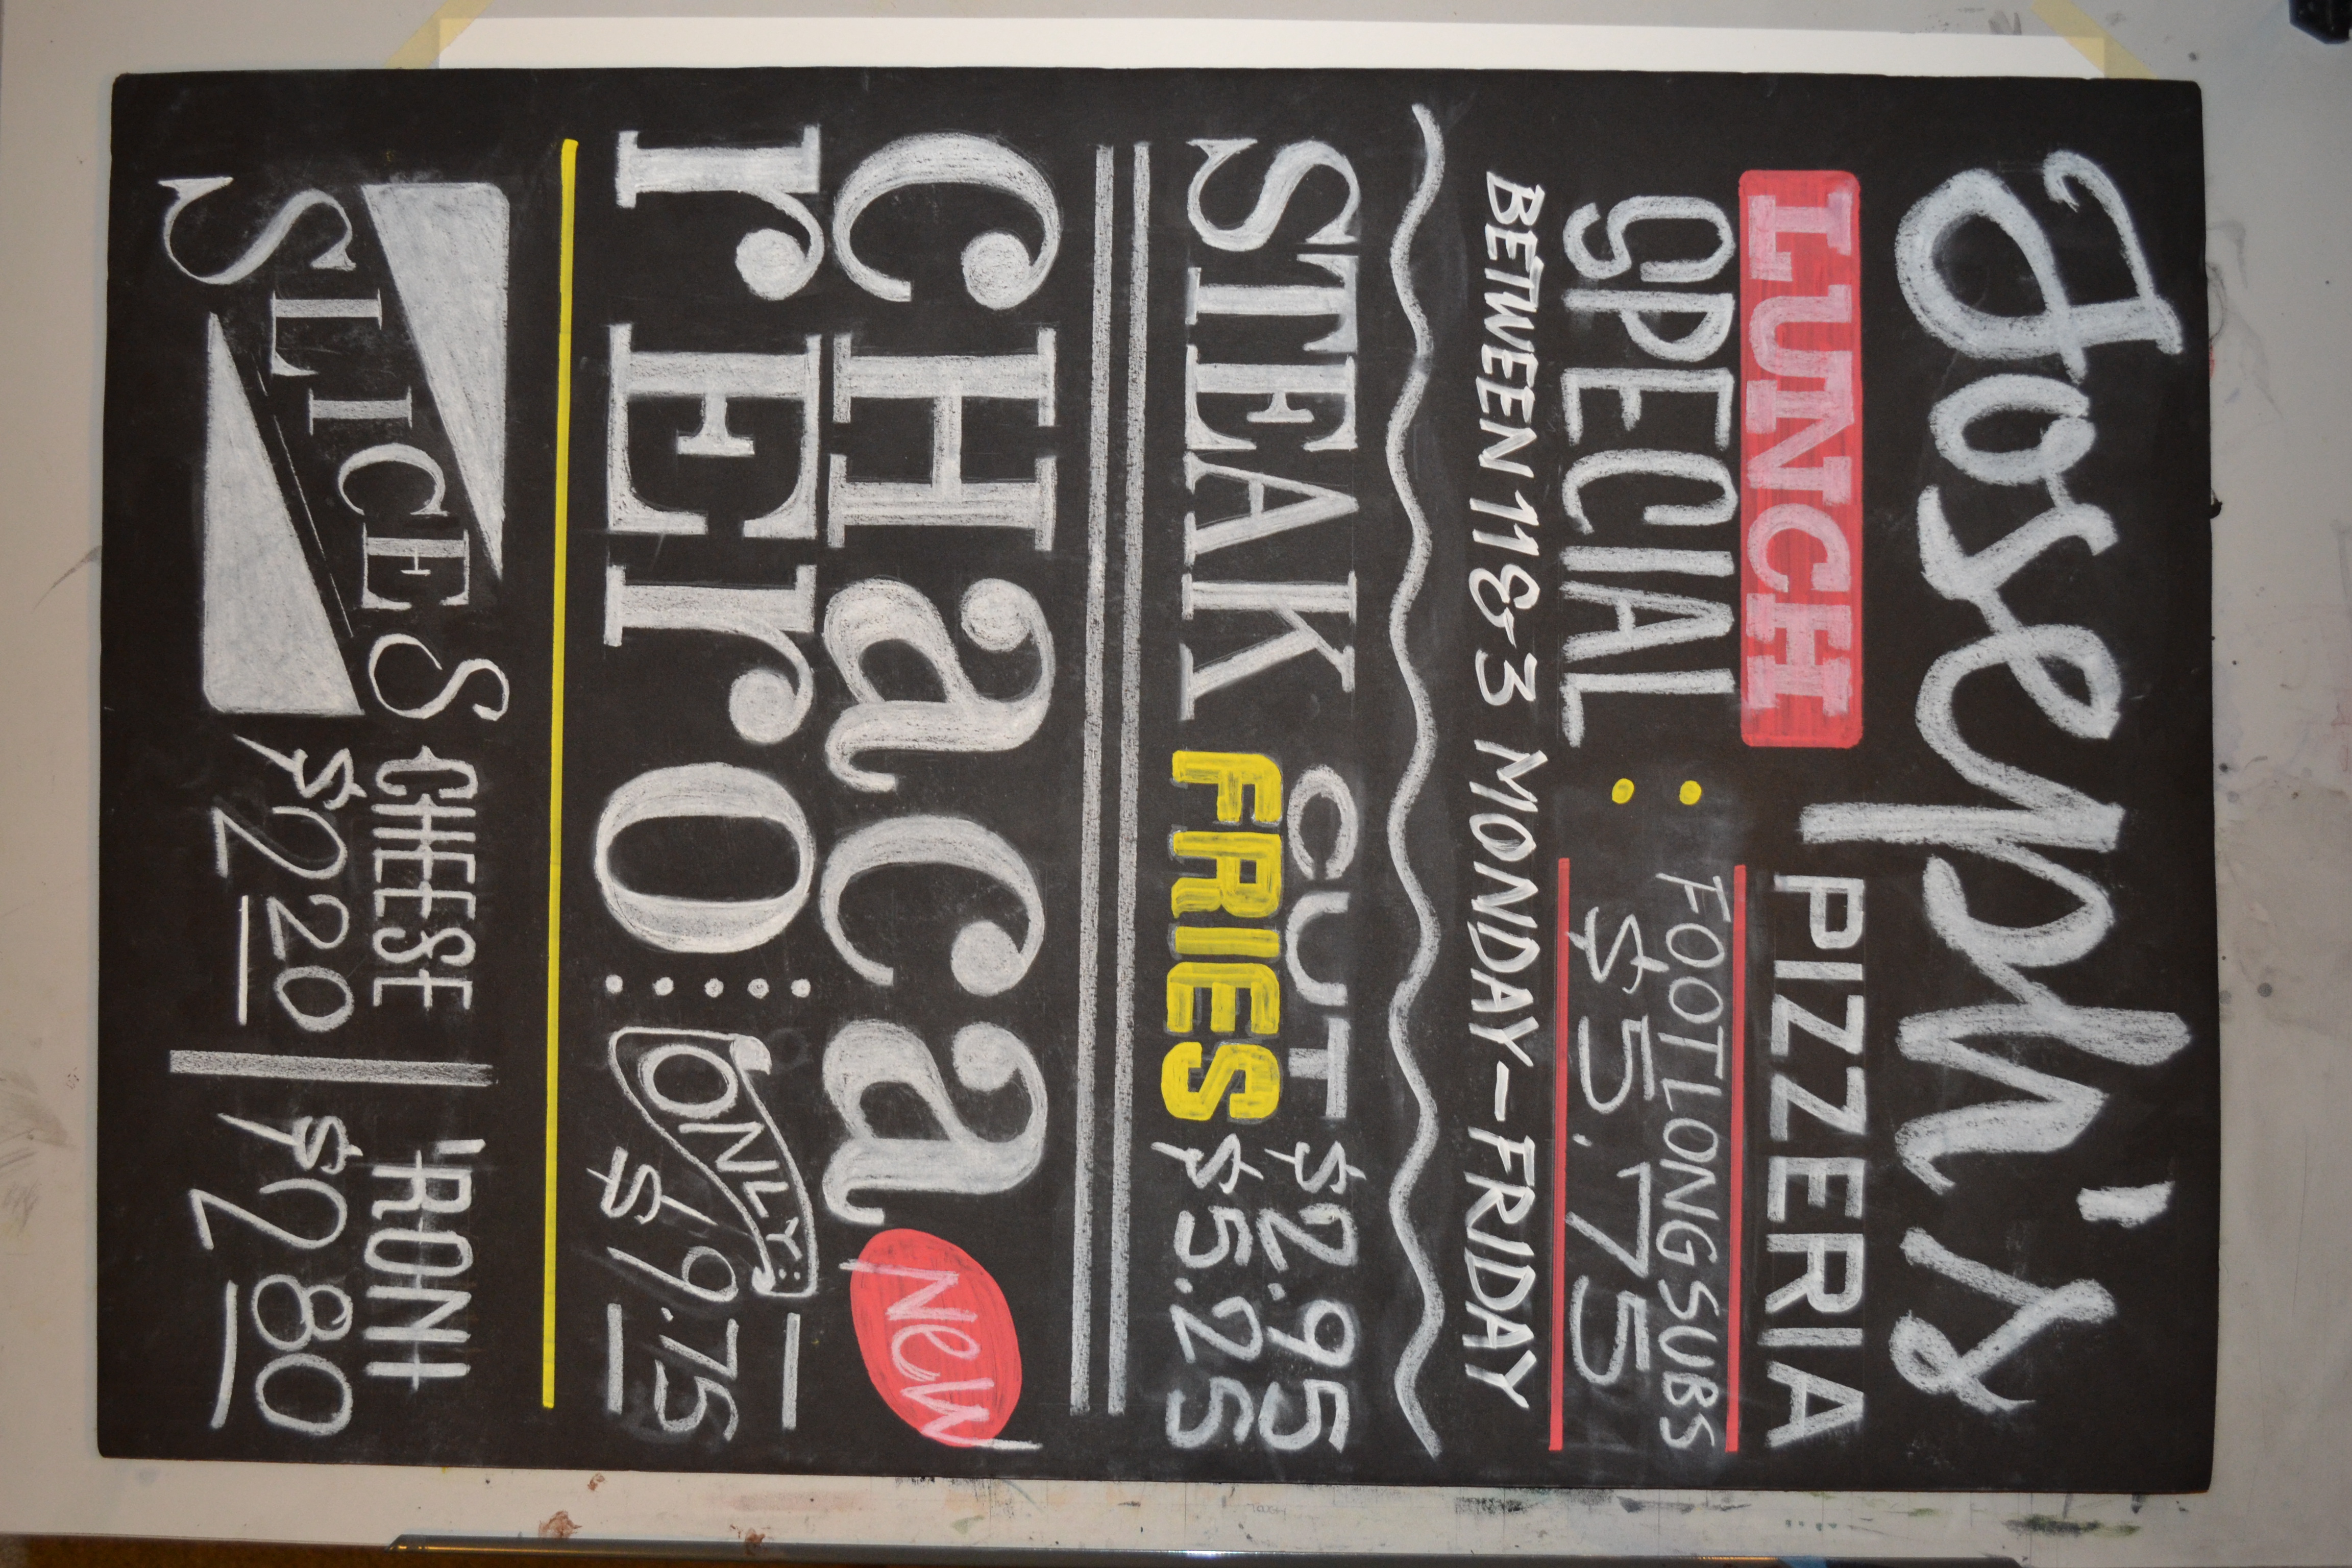 Joseph's
PIZZERIA
LUNCH
SPECIAL :
FOOTLONG SUBS
$5.75
BETWEEN 11 & 3 MONDAY-FRIDAY
STEAK CUT $2.95
FRIES $5.25
cHaca NeW
rEro ONLY: $9.75
SLICES
CHEESE 'RONI
$2.20 $2.80